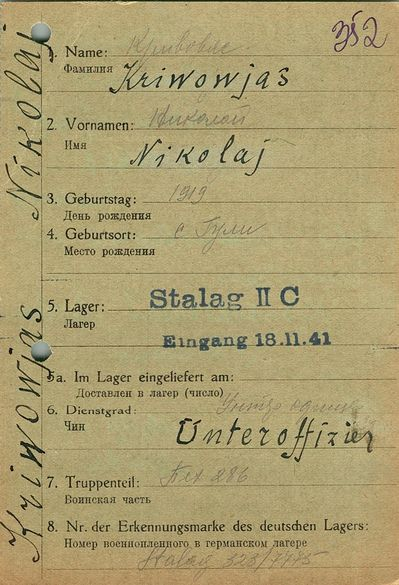 352
1. Name: Кривовяс
Фамилия Kriwowjas
2. Vornamen: Николай
Имя Nikolaj
3. Geburtstag: 1919
День рождения
4. Geburtsort: с Гули
Место рождения
5. Lager: Stalag II C
Лагер
Eingang 18.11.41
5a. Im Lager eingeliefert am:
Доставлен в лагер (число)
6. Dienstgrad:
Чин Unteroffizier
7. Truppenteil: 286
Воинская часть
8. Nr. der Erkennungsmarke des deutschen Lagers:
Номер военнопленного в германском лагере
Stalag 328/7775
Kriwowjas Nikolaj